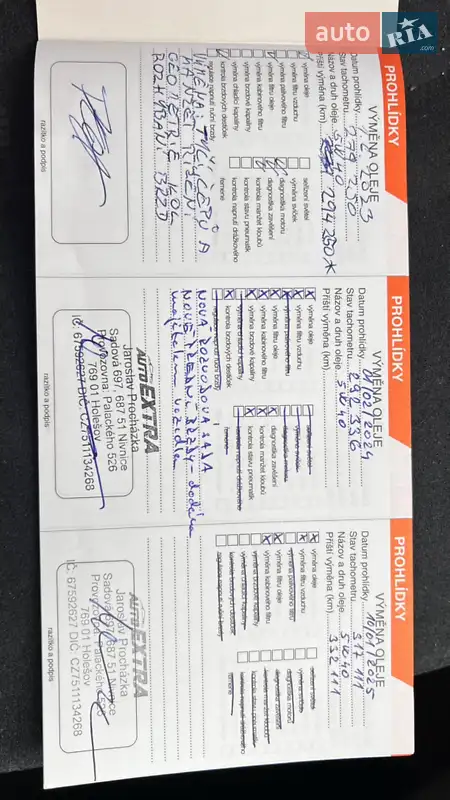 auto RIA .com
PROHLÍDKY
VÝMĚNA OLEJE
Datum prohlídky
Stav tachometru
Názov a druh oleje 5W40
Příští výměna (km) 294 250 *
výměna oleje
výměna filtru oleje
výměna filtru vzduchu
výměna palivového filtru
výměna kabinového filtru
výměna brzdové kapaliny
výměna chladící kapaliny
kontrola brzdových destiček
regulace napnutí ruční brzdy
seřízení světel
výměna svíček
diagnostika motoru
diagnostika zavěšení
kontrola manžet kloubů
kontrola stavu pneumatik
kontrola napnutí drážkového
řemene
VÝMĚNA: TYČÍ, ČEPŮ A
MANŽET ŘÍZENÍ
GEOMETRIE KOL
razítko a podpis
PROHLÍDKY
VÝMĚNA OLEJE
Datum prohlídky
Stav tachometru 292 336
Názov a druh oleje 5W40
Příští výměna (km)
výměna oleje
výměna filtru vzduchu
výměna palivového filtru
výměna filtru oleje
výměna kabinového filtru
výměna brzdové kapaliny
výměna chladící kapaliny
kontrola brzdových destiček
regulace napnutí ruční brzdy
seřízení světel
výměna svíček
diagnostika motoru
diagnostika zavěšení
kontrola manžet kloubů
kontrola stavu pneumatik
kontrola napnutí drážkového
řemene
NOVÁ ROZVODOVÁ SADA
NOVÉ PŘEDNÍ BRZDY - dodáno
majitelem vozidla
AUTO EXTRA
Jaroslav Procházka
Sadová 697, 687 51 Nivnice
Provozovna: Palackého 526
769 01 Holešov
IČ: 67592627 DIČ: CZ7511134268
razítko a podpis
PROHLÍDKY
VÝMĚNA OLEJE
Datum prohlídky 10/01/2025
Stav tachometru 312 111
Názov a druh oleje 5W40
Příští výměna (km) 332 111
výměna oleje
výměna filtru vzduchu
výměna palivového filtru
výměna filtru oleje
výměna kabinového filtru
výměna brzdové kapaliny
výměna chladící kapaliny
kontrola brzdových destiček
regulace napnutí ruční brzdy
seřízení světel
výměna svíček
diagnostika motoru
diagnostika zavěšení
kontrola manžet kloubů
kontrola stavu pneumatik
kontrola napnutí drážkového
řemene
AUTO EXTRA
Jaroslav Procházka
Sadová 697, 687 51 Nivnice
Provozovna: Palackého 526
769 01 Holešov
IČ: 67592627 DIČ: CZ7511134268
razítko a podpis